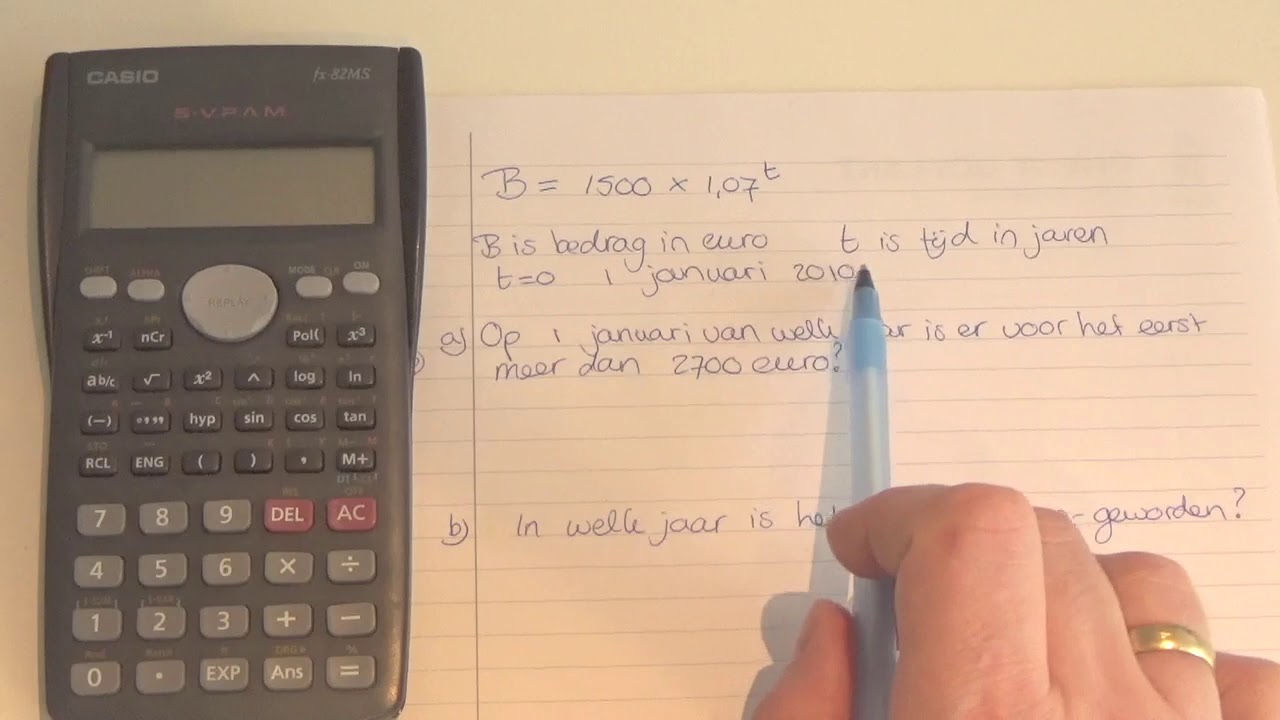 CASIO fx-82MS
S-V.P.A.M.
SHIFT ALPHA REPLAY MODE CLR ON
x⁻¹ nCr Pol( x³
ab/c √ x² ^ log ln
(−) °,,, hyp sin cos tan
STO
RCL ENG ( ) , M+
7 8 9 DEL AC
4 5 6 × ÷
1 2 3 + −
0 . EXP Ans =
B = 1500 × 1,07ᵗ
B is bedrag in euro t is tijd in jaren
t=0 1 januari 2010
a) Op 1 januari van is er voor het eerst
meer dan 2700 euro?
b) In welk jaar is geworden?